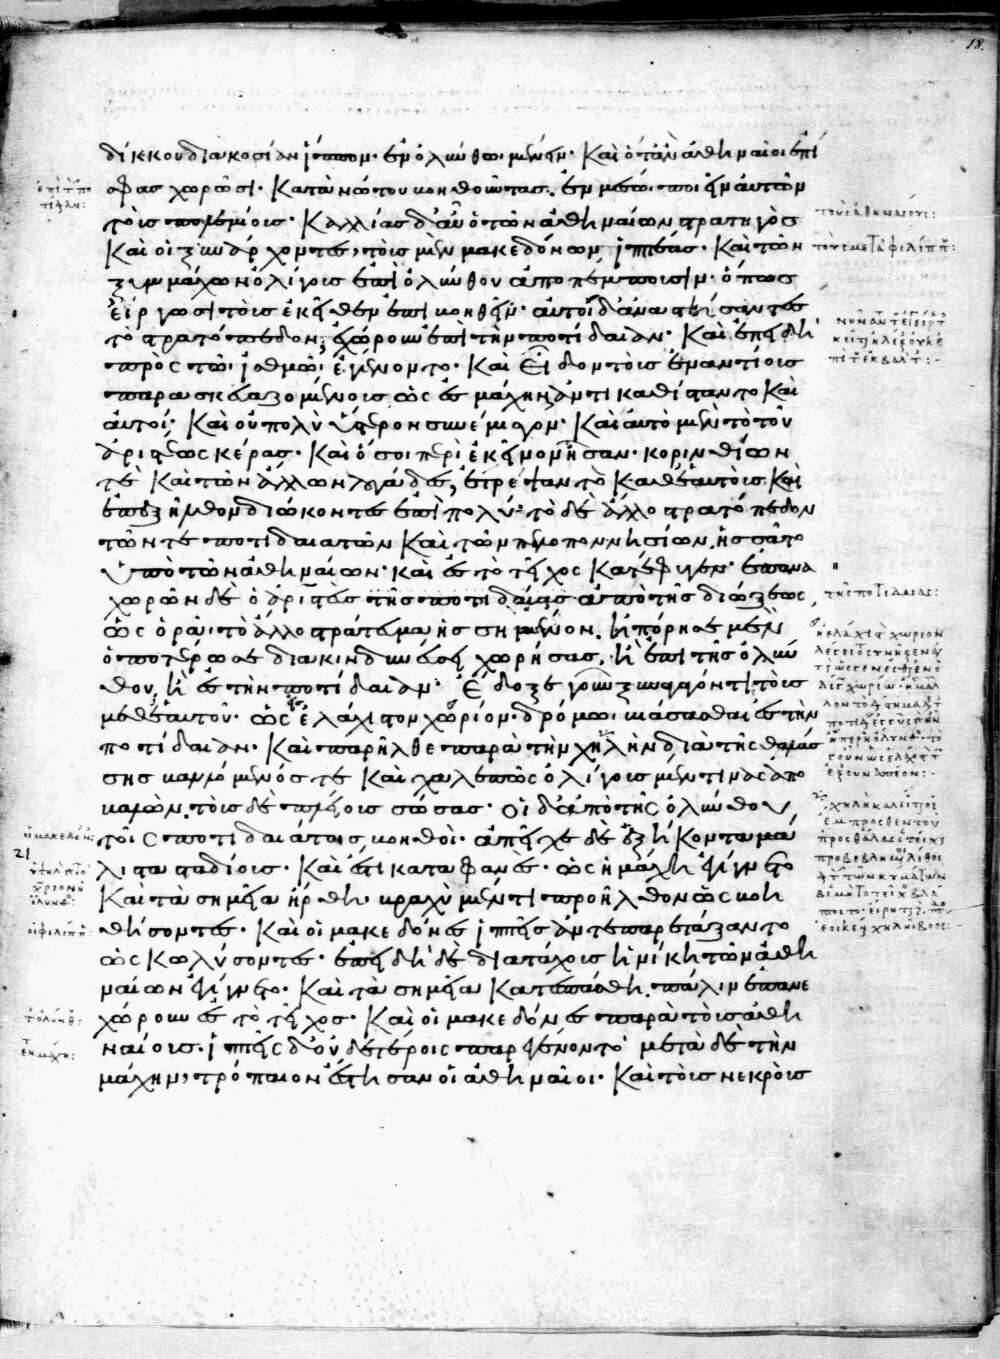 δίκκου διακοσίαν ἵππον· ἐν ὀλύνθω μένειν· Καὶ ὅταν ἀθηναῖοι ἐπὶ
σφᾶς χωρῶσι· Κατὰ νώτου βοηθοῦντας. ἐν μέσω ποιεῖν αὐτῶν
τοὺς πολεμίους· Καλλίας δ' αὖ ὁ τῶν ἀθηναίων στρατηγὸς
Καὶ οἱ ξυνάρχοντες, τοὺς μὲν μακεδόνων ἱππέας· Καὶ τῶν
ξυμμάχων ὀλίγους ἐπὶ ὀλύνθου ἀποπέμπουσιν· ὅπως
εἴργωσι τοὺς ἐκεῖθεν ἐπιβοηθεῖν· αὐτοὶ δ' ἀναστήσαντες
τὸ στρατόπεδον, ἐχώρουν ἐπὶ τὴν ποτίδαιαν· Καὶ ἐπειδὴ
πρὸς τῶ ἰσθμῶ ἐγένοντο· Καὶ εἶδον τοὺς ἐναντίους
παρασκευαζομένους ὡς ἐς μάχην, ἀντικαθίσταντο Καὶ
αὐτοί· Καὶ οὐ πολὺ ὕστερον συνέμισγον· Καὶ αὐτὸ μὲν τὸ τοῦ
ἀριστέως κέρας· Καὶ ὅσοι περὶ ἐκεῖνον ἦσαν· κορινθίων
τε Καὶ τῶν ἄλλων λογάδες, ἔτρεψαν τὸ Καθ' ἑαυτοὺς Καὶ
ἐπεξῆλθον διώκοντες ἐπὶ πολύ· τὸ δὲ ἄλλο στρατόπεδον
τῶν τε ποτιδαιατῶν Καὶ τῶν πελοποννησίων. ἡσσᾶτο
ὑπὸ τῶν ἀθηναίων· καὶ ἐς τὸ τεῖχος Κατέφυγεν· ἐπανα
χωρῶν δὲ ὁ ἀριστεὺς τῆς ποτιδαίας ἀπὸ τῆς διώξεως,
ὡς ὁρᾶ τὸ ἄλλο στράτευμα ἡσσημένον. ἠπόρησε μὲν
ὁποτέρωσε διακινδυνεύσει χωρήσας, ἢ ἐπὶ τῆς ὀλύν
θου, ἢ ἐς τὴν ποτίδαιαν· Ἔδοξε γοῦν ξυναγαγόντι τοὺς
μεθ' ἑαυτοῦ· ὡς ἐς ἐλάχιστον χωρίον· δρόμω βιάσασθαι ἐς τὴν
ποτίδαιαν· Καὶ παρῆλθε παρὰ τὴν χηλὴν διὰ τῆς θαλάσ
σης βαλλόμενός τε Καὶ χαλεπῶς ὀλίγους μέν τινας ἀπο
βαλὼν. τοὺς δὲ πλείους σώσας· οἱ δὲ ἀπὸ τῆς ὀλύνθου
τοῖς ποτιδαιάταις βοηθοὶ· ἀπεῖχε δὲ ἑξήκοντα μά
λιστα σταδίους· Καὶ ἔστι καταφανὲς· ὡς ἡ μάχη ἐγίγνετο
Καὶ τὰ σημεῖα ἤρθη· βραχὺ μέν τι προῆλθον ὡς βοη
θήσοντες· Καὶ οἱ μακεδόνες ἱππεῖς ἀντεπαρετάξαντο
ὡς Κωλύσοντες· ἐπειδὴ δὲ διατάχους ἡ νίκη τῶν ἀθη
ναίων ἐγίγνετο· Καὶ τὰ σημεῖα Κατεσπάσθη. πάλιν ἐπανε
χώρουν ἐς τὸ τεῖχος· Καὶ οἱ μακεδόνες παρὰ τοὺς ἀθη
ναίους. ἱππεῖς δ' οὐδετέροις παρεγένοντο· μετὰ δὲ τὴν
μάχην, τρόπαιον ἔστησαν οἱ ἀθηναῖοι· Καὶ τοὺς νεκροὺς
18.
τοὺς ἀθηναίους:
τοὺς μετὰ φιλίππ:
21